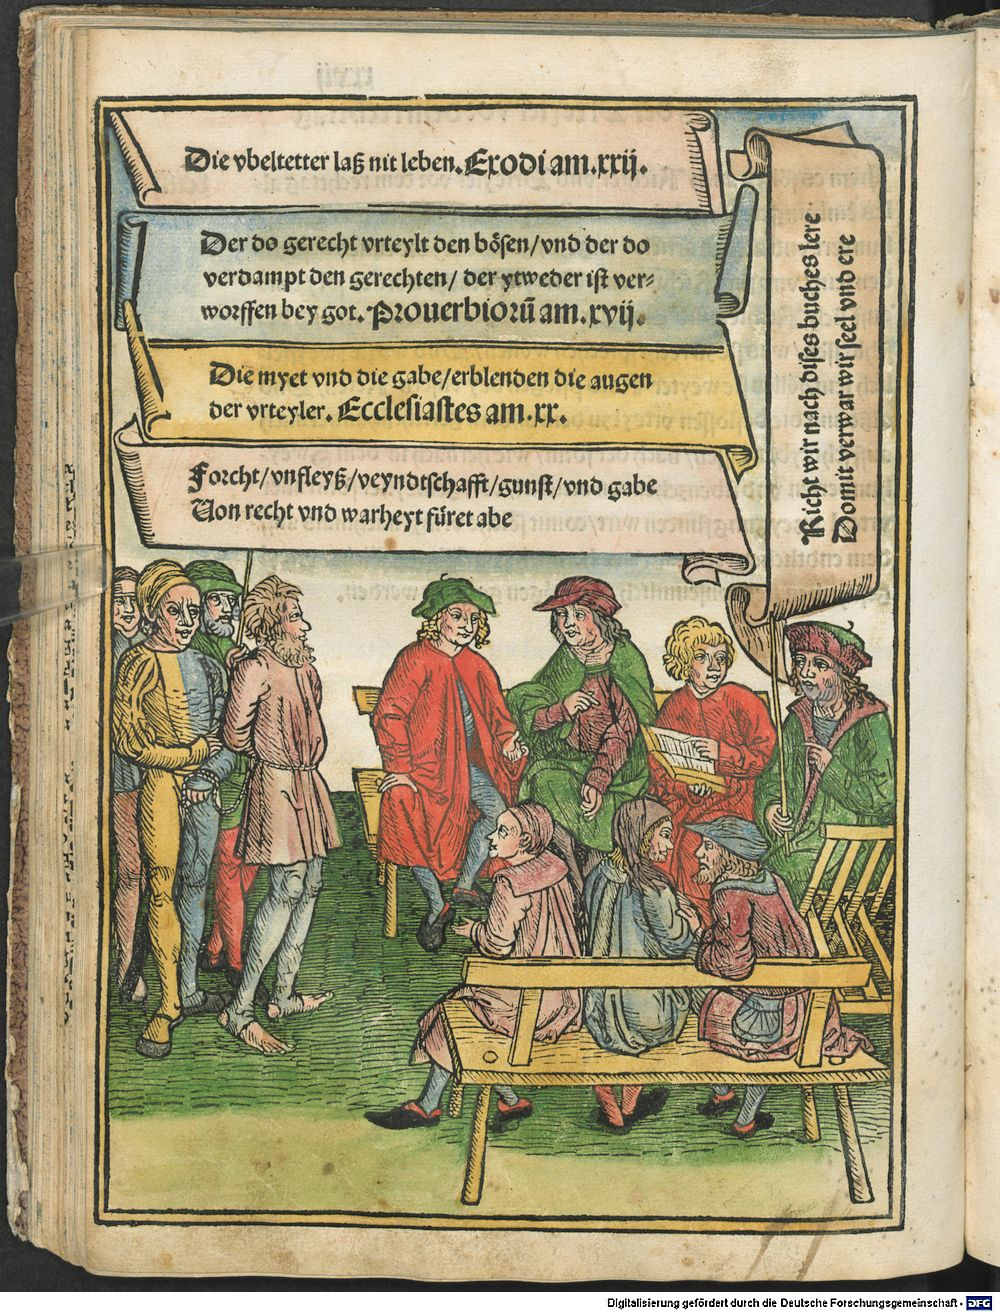 Die vbeltetter laß nit leben. Exodi am .xxij.
Der do gerecht vrteylt den bösen/vnd der do
verdampt den gerechten/ der ytweder ist ver-
worffen bey got. Prouerbiorū am .xvij.
Die myet vnd die gabe/erblenden die augen
der vrteyler. Ecclesiastes am .xx.
Forcht/vnfleyß/veyndtschafft/gunst/vnd gabe
Von recht vnd warheyt füret abe
Richt wir nach dises buches lere
Domit verwar wir seel vnd ere
Digitalisierung gefördert durch die Deutsche Forschungsgemeinschaft - DFG